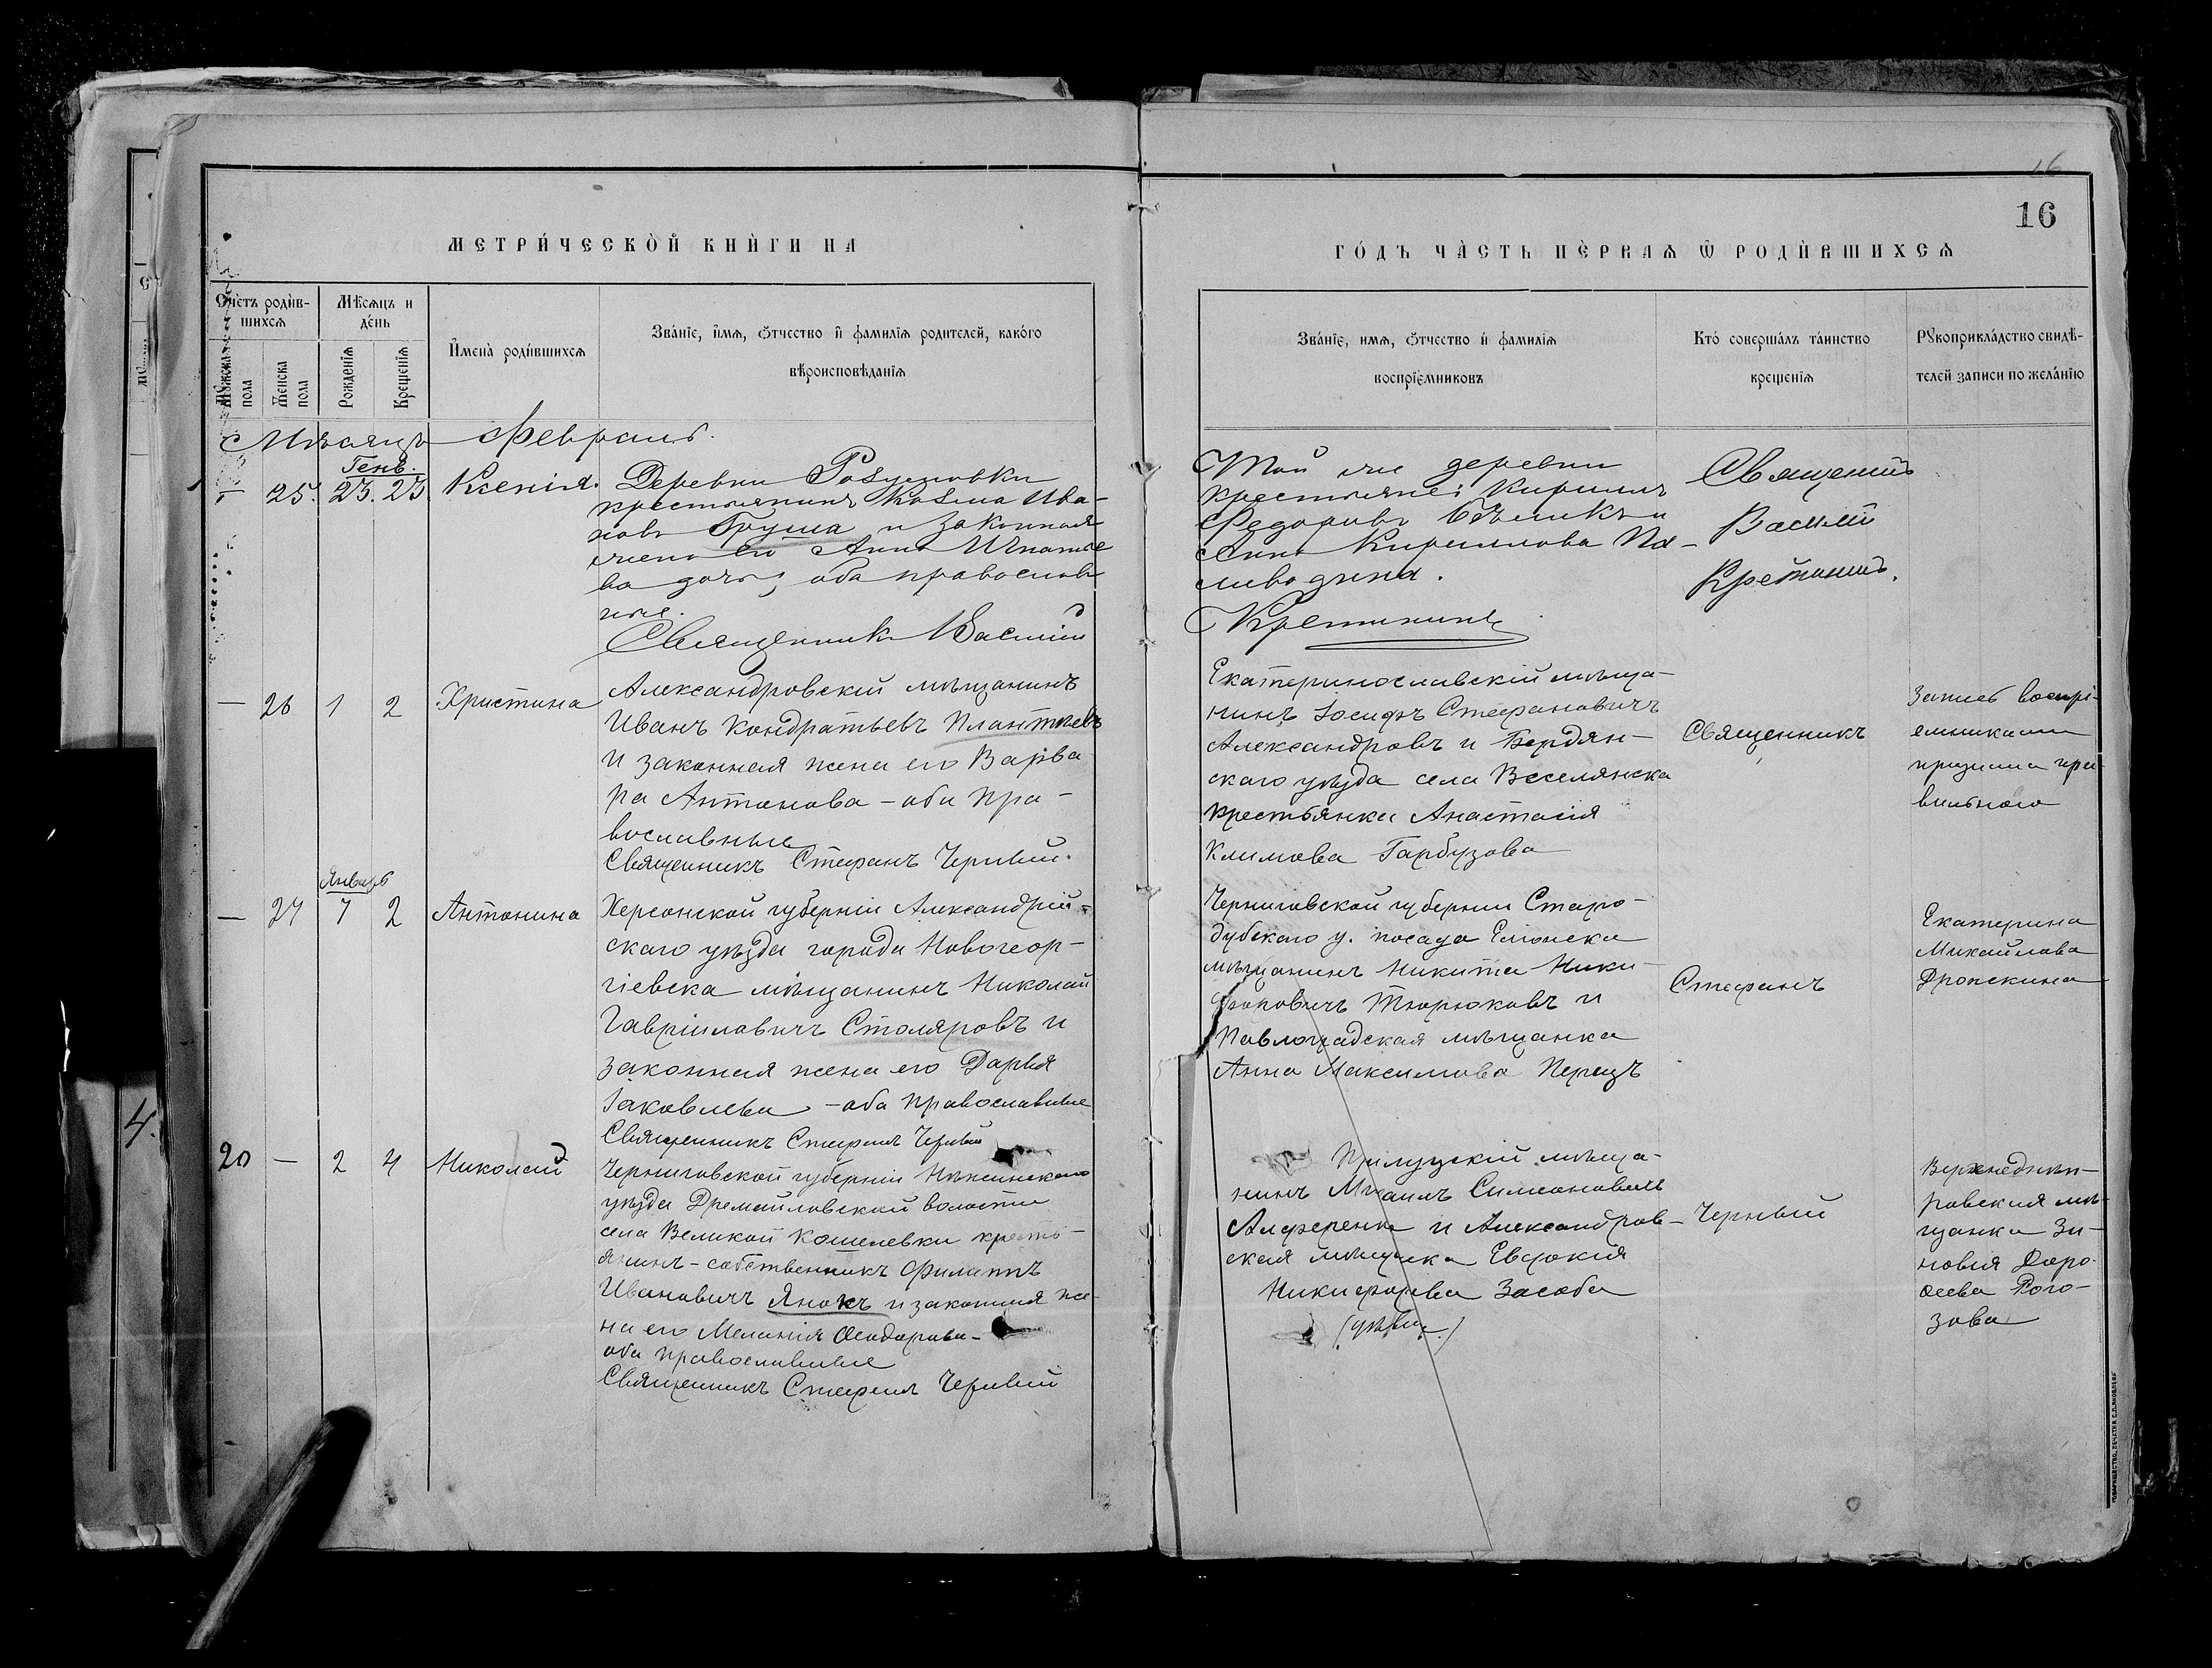 16
16
МЕТРИ́ЧЕСКОЙ КНИ́ГИ НА
ГО́ДЪ ЧА́СТЬ ПЕ́РВАѦ Ѿ РОДИ́ВШИХСѦ
Сче́тъ роди́в-
шихсѧ
Мѣ́сѧцъ и
де́нь
Мꙋжска
пола
Женска
пола
Рожденїѧ
Крещенїѧ
И҆мена̀ роди́вшихсѧ
Зва́нїе, и҆́мѧ, ѻ҆́тчество и҆ фамилїѧ родителей, како́го
вѣроисповѣданїѧ
Зва́нїе, имѧ, ѻ҆́тчество и҆ фамилїѧ
воспрїе́мниковъ
Кто́ соверша́лъ та́инство
крещенїѧ
Рꙋкоприкла́дство свидѣ́-
телей записи по жела́нїю
Мѣсяцъ Февраль.
Генв.
— 25. 23. 23. Ксенія.
Деревни
крестьянинъ Козьма Ива-
новъ Груша и законная
жена его Анна Игнатіе
ва дочь, оба православ
ные.
Священникъ Василій
Той же деревни
крестьяне: Кириллъ
Федоровъ и
Анна Кириллова Па-
ливодина.
Кретининъ
Священникъ
Василій
Кретининъ.
— 26 1 2 Христина
Александровскій мѣщанинъ
Иванъ Кондратьевъ
и законная жена его Варва
ра Антонова – оба пра-
вославные
Священникъ Стефанъ Черный.
Екатеринославскій мѣща-
нинъ Іосифъ Стефановичъ
Александровъ и Бердян-
скаго уѣзда села Веселянска
крестьянка Анастасія
Климова Гарбузова
Священникъ
Запись воспрі-
емниками
признана пра-
вильною
Январь
— 27 7 2 Антонина
Херсонской губерніи Александрій-
скаго уѣзда города Новогеор-
гіевска мѣщанинъ Николай
Гавріиловичъ Столяровъ и
законная жена его Дарья
Іаковлева – оба православные
Священникъ Стефанъ Черный
Черниговской губерніи Старо-
дубскаго у. посада Елионска
мѣщанинъ Никита Ники-
форовичъ Тюрюковъ и
Павлоградская мѣщанка
Анна Максимова
Стефанъ
Екатерина
Михайлова
20 — 2 4 Николай
Черниговской губерніи Нѣжинскаго
уѣзда Дремайловской волости
села Великой Кошелевки кресть-
янинъ-собственникъ Филиппъ
Ивановичъ Янокъ и законная же-
на его Меланія Ѳеодорова –
оба православные
Священникъ Стефанъ Черный
Прилуцкій мѣща-
нинъ Михаилъ Симеоновичъ
Алференко и Александров-
ская мѣщанка Евдокія
Никифорова Засоба
Черный
Верхнеднѣп-
ровская мѣ-
щанка Зи-
новія Доро-
ѳеева Рого-
зова
4.